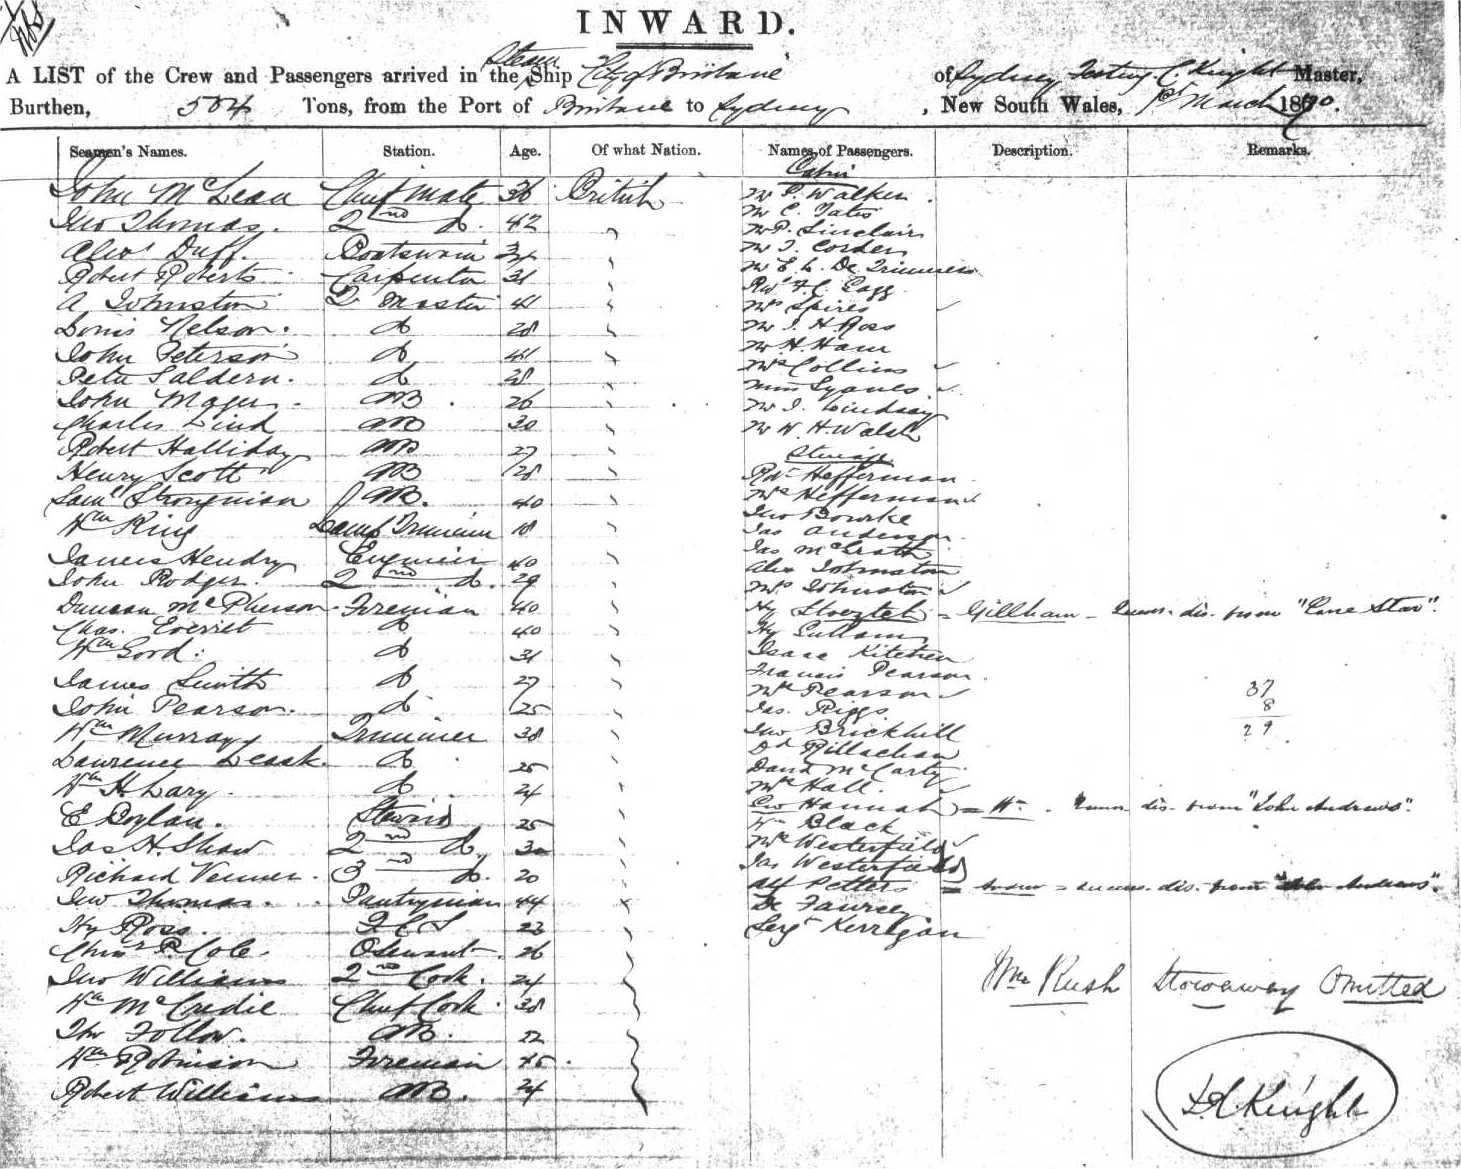 INWARD.
A LIST of the Crew and Passengers arrived in the Steam Ship City of Brisbane of Sydney Knight Master,
Burthen, 504 Tons, from the Port of Brisbane to Sydney, New South Wales, 1st March 1870.
Seamen's Names. Station. Age. Of what Nation. Names of Passengers. Description. Remarks.
John McLean Chief Mate 36 British
Jno Thomas. 2nd do. 42
Alexr Duff. Boatswain
Robert Roberts Carpenter 31
A Johnston 2 Master 41
Nelson. do 28
John Peterson do 41
Peter Saldern. do 28
John AB. 26
Charles Lind AB 30
Robert Halliday AB 27
Henry Scott AB 28
Saml AB. 40
Wm King Lamp Trimmer 18
James Hendry Engineer 40
John Rodger. 2nd do. 29
Duncan McPherson Fireman 40
Chas. Everett do 40
Wm Gord: do 31
James Smith do 27
John Pearson. do 25
Wm Murray Trimmer 38
Lawrence Leask. do 25
Wm H. Lary. do 24
E Doylan. Steward 25
Jas H. Shaw 2nd do. 30
Richard Venner. 3 do. 20
Jno Thomas. Pantryman 44
Hy Ross. F C S 23
P. Cole. 26
Jno Williams 2nd Cook. 24
Wm McCredie Chief Cook. 38
Follow. AB. 22
Wm Robinson Fireman 45
Robert Williams AB. 24
Cabin
Mr P. Walker
Mr C. Yates
Mr P. Sinclair
Mr J. Corder
Mr E. L. De
Revd F. C.
Mrs Spires
Mr J. H. Ross
Mr H. Ham
Mrs Collins
Miss Lyones
Mr J. Lindsay
Mr W. H. Walsh
Steerage
Hefferman
Mrs Hefferman
Jno Bourke
Jas Anderson
Jas McGrath
Alex Johnston
Mrs Johnston
Hy = Gillham - dis. from "Lone Star".
Hy
Isaac Kitchen
Francis Pearson
Mrs Pearson
Jas. Riggs
Jno Brickhill
David McCarty
Mrs Hall.
Geo Hannah = Wm. dis. from "John Andrews".
Wm Black
Mrs Westerfield
Jas Westerfield
Alf Petters = dis. from "John Andrews".
De
Sergt Kerrigan
37
8
29
Wm Rush Stowaway Omitted
Knight